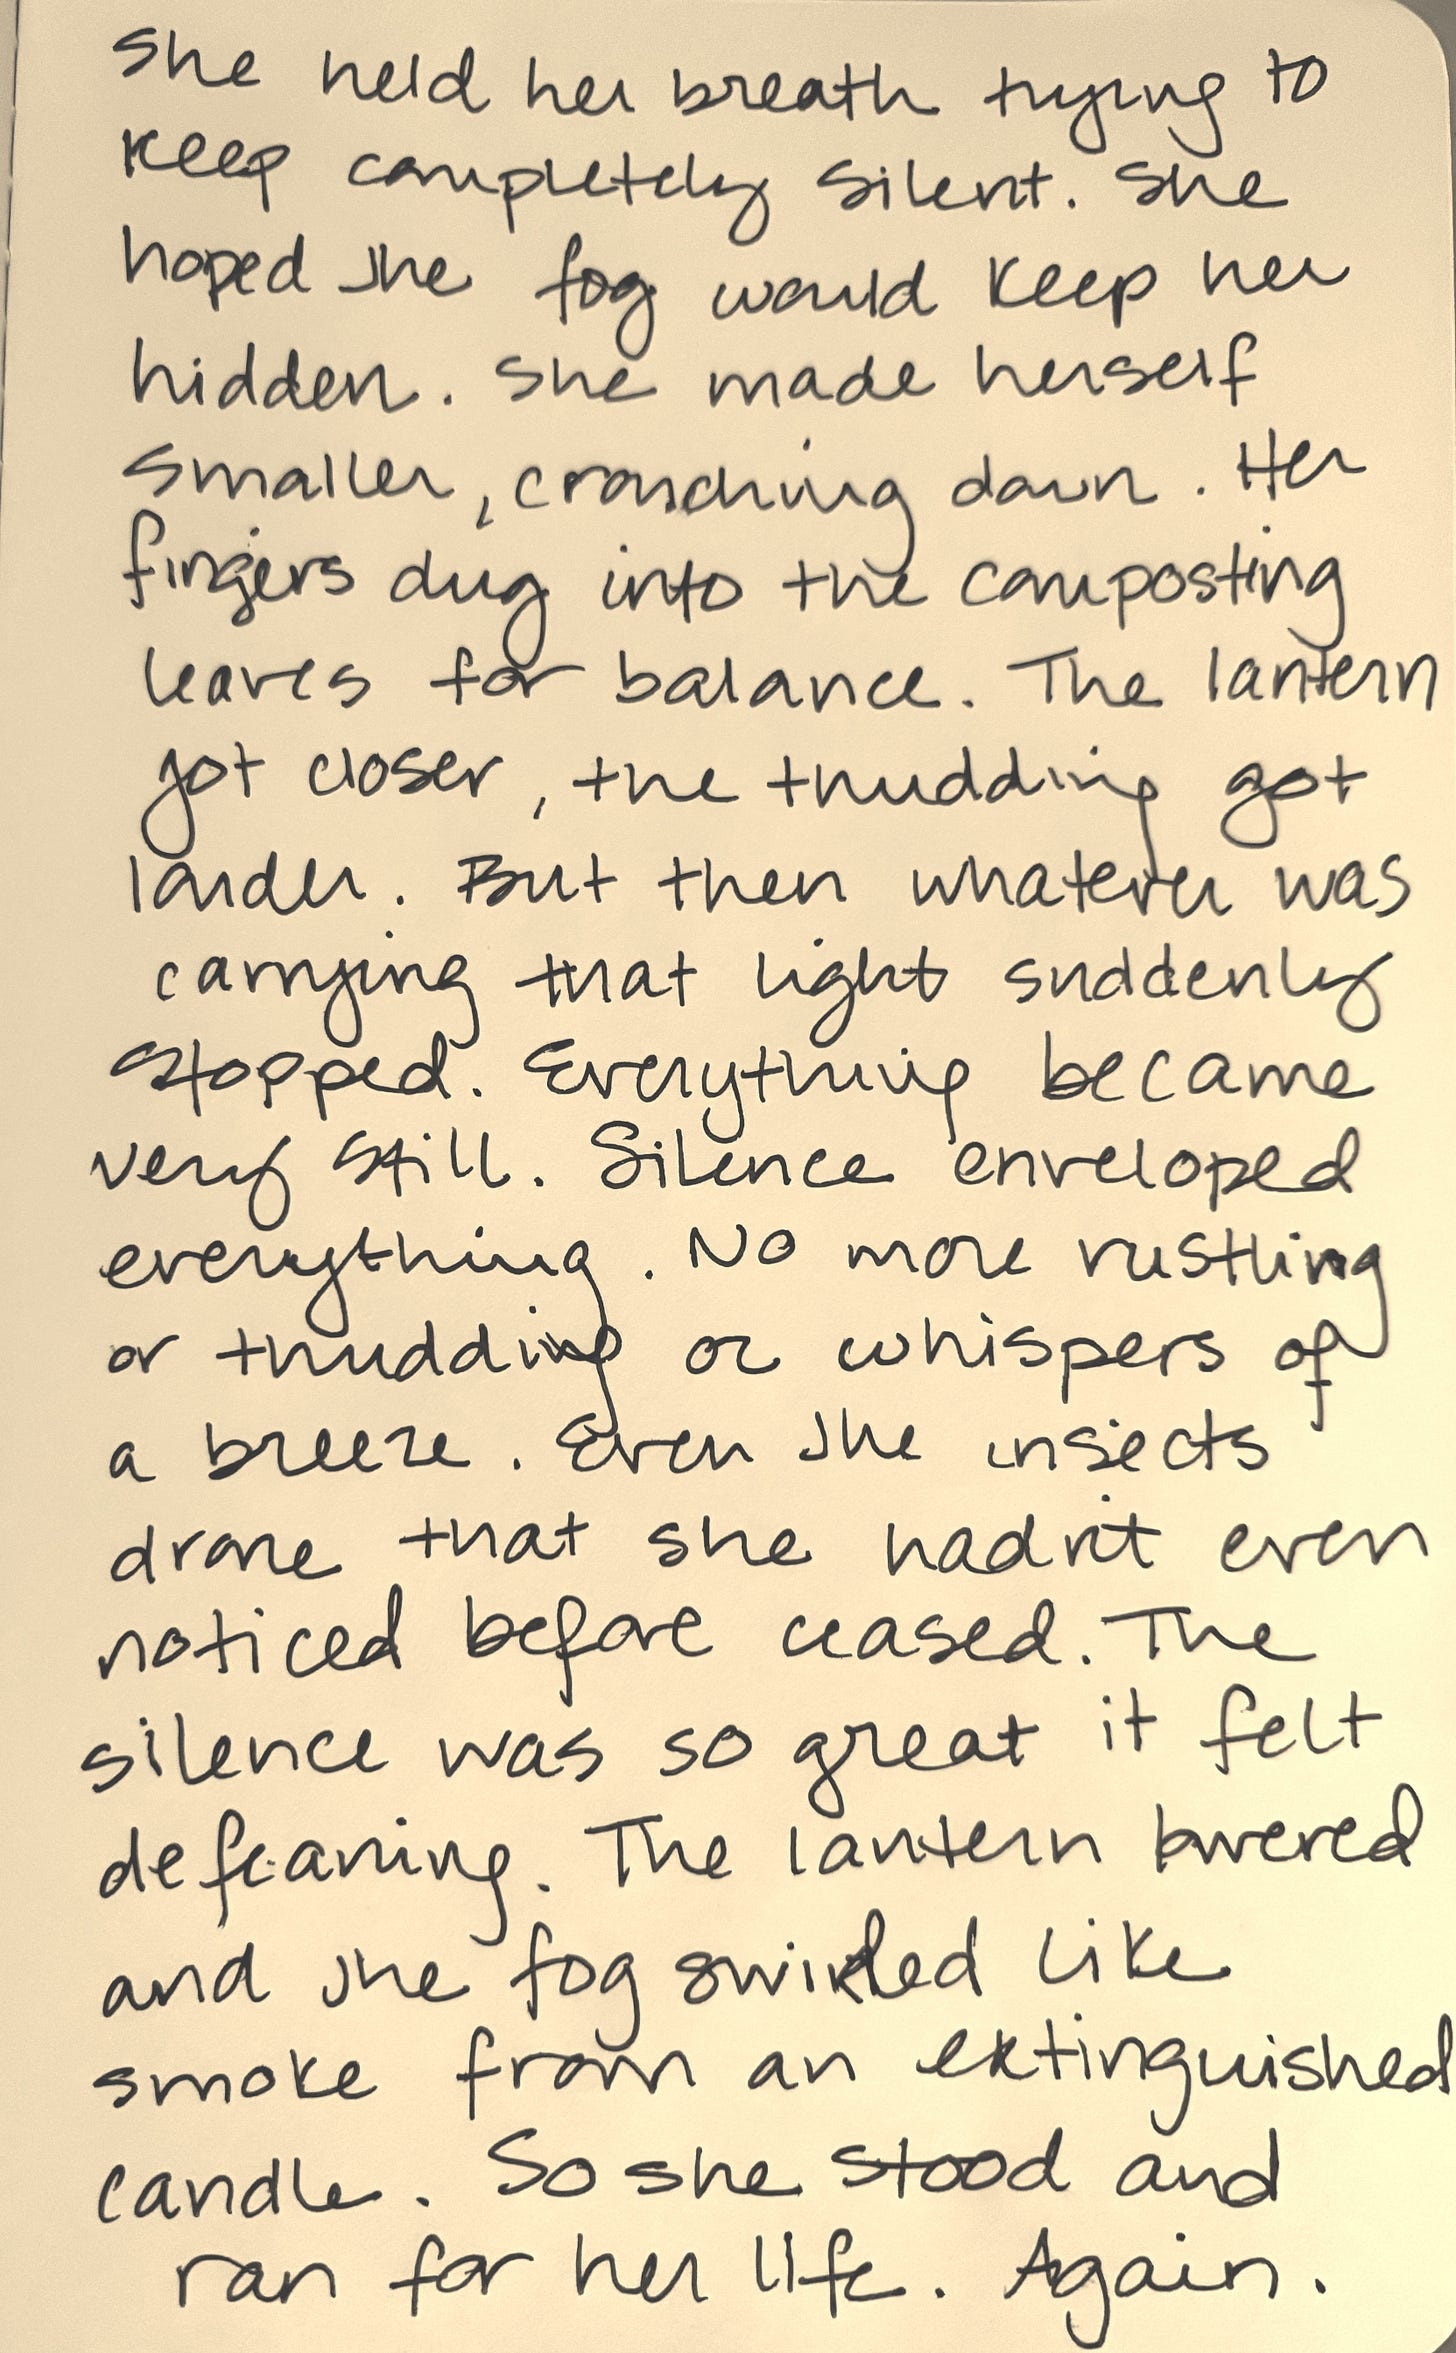 She held her breath trying to
keep completely silent. She
hoped the fog would keep her
hidden. She made herself
smaller, crouching down. Her
fingers dug into the composting
leaves for balance. The lantern
got closer, the thudding got
louder. But then whatever was
carrying that light suddenly
stopped. Everything became
very still. Silence enveloped
everything. No more rustling
or thudding or whispers of
a breeze. Even the insects
drone that she hadn't even
noticed before ceased. The
silence was so great it felt
defeaning. The lantern lowered
and the fog swirled like
smoke from an extinguished
candle. So she stood and
ran for her life. Again.